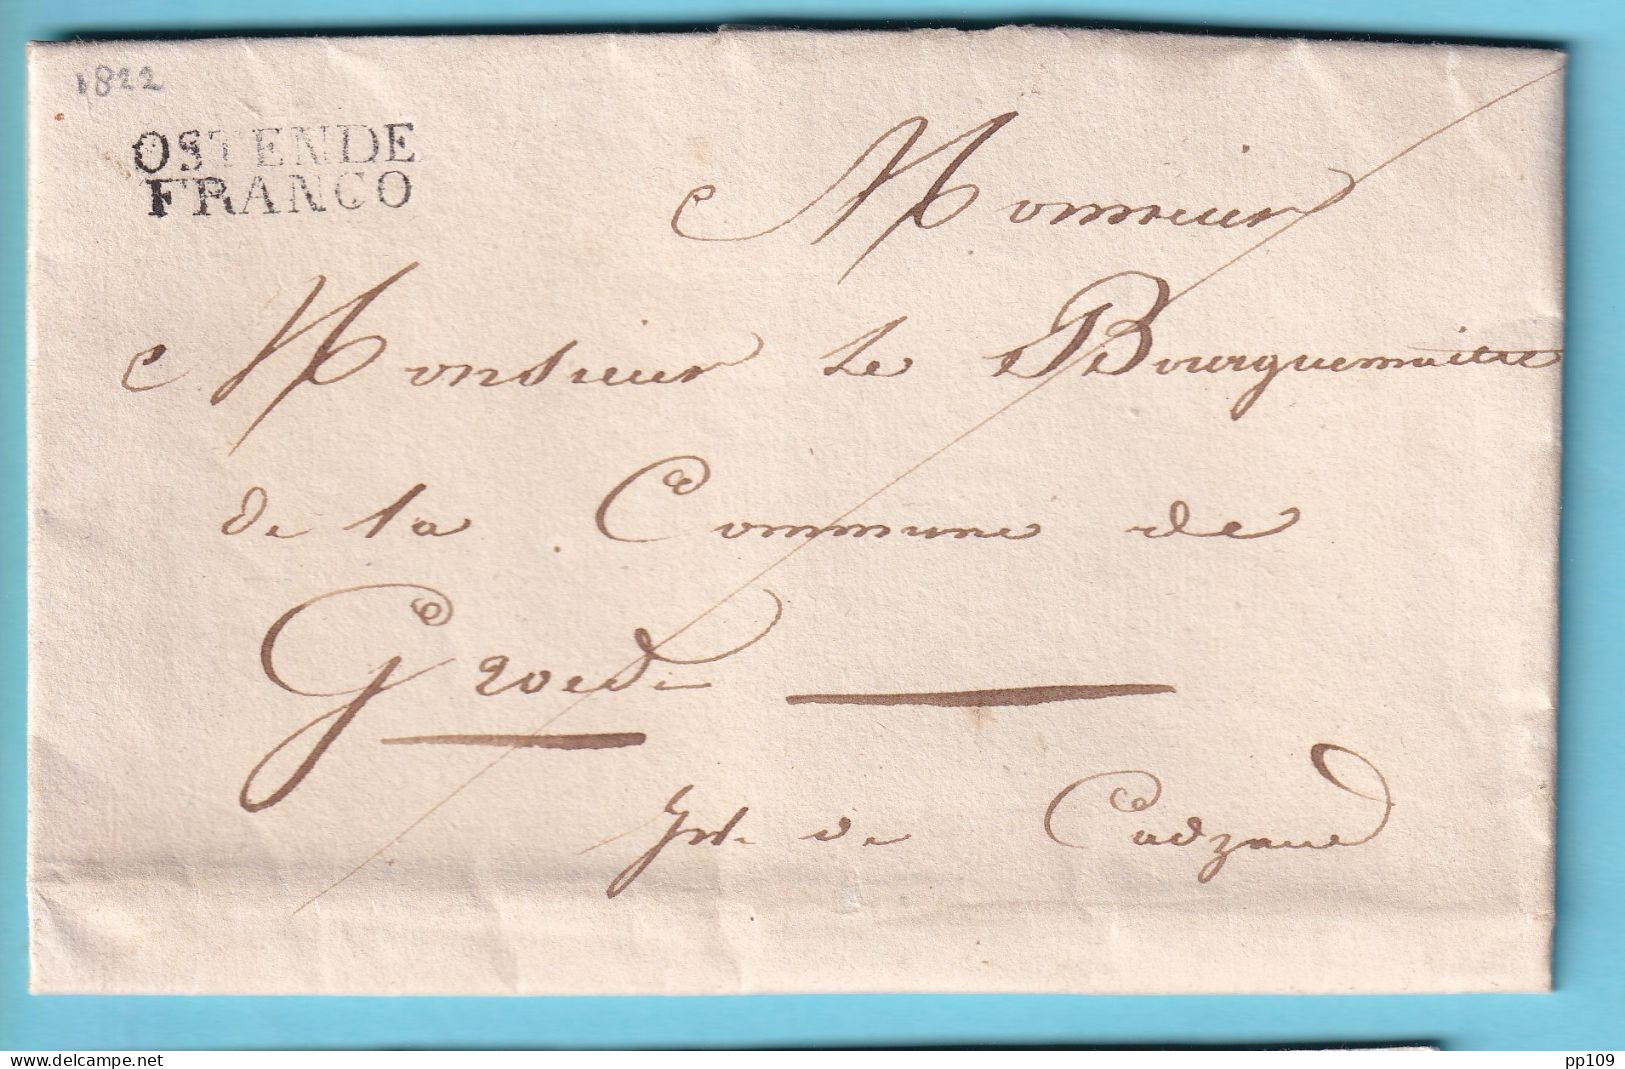 1822
OSTENDE
FRANCO
Monsieur
Monsieur le Bourguemaitre
de la Commune de
Groede
de Cadzand
delcampe.net
pp109